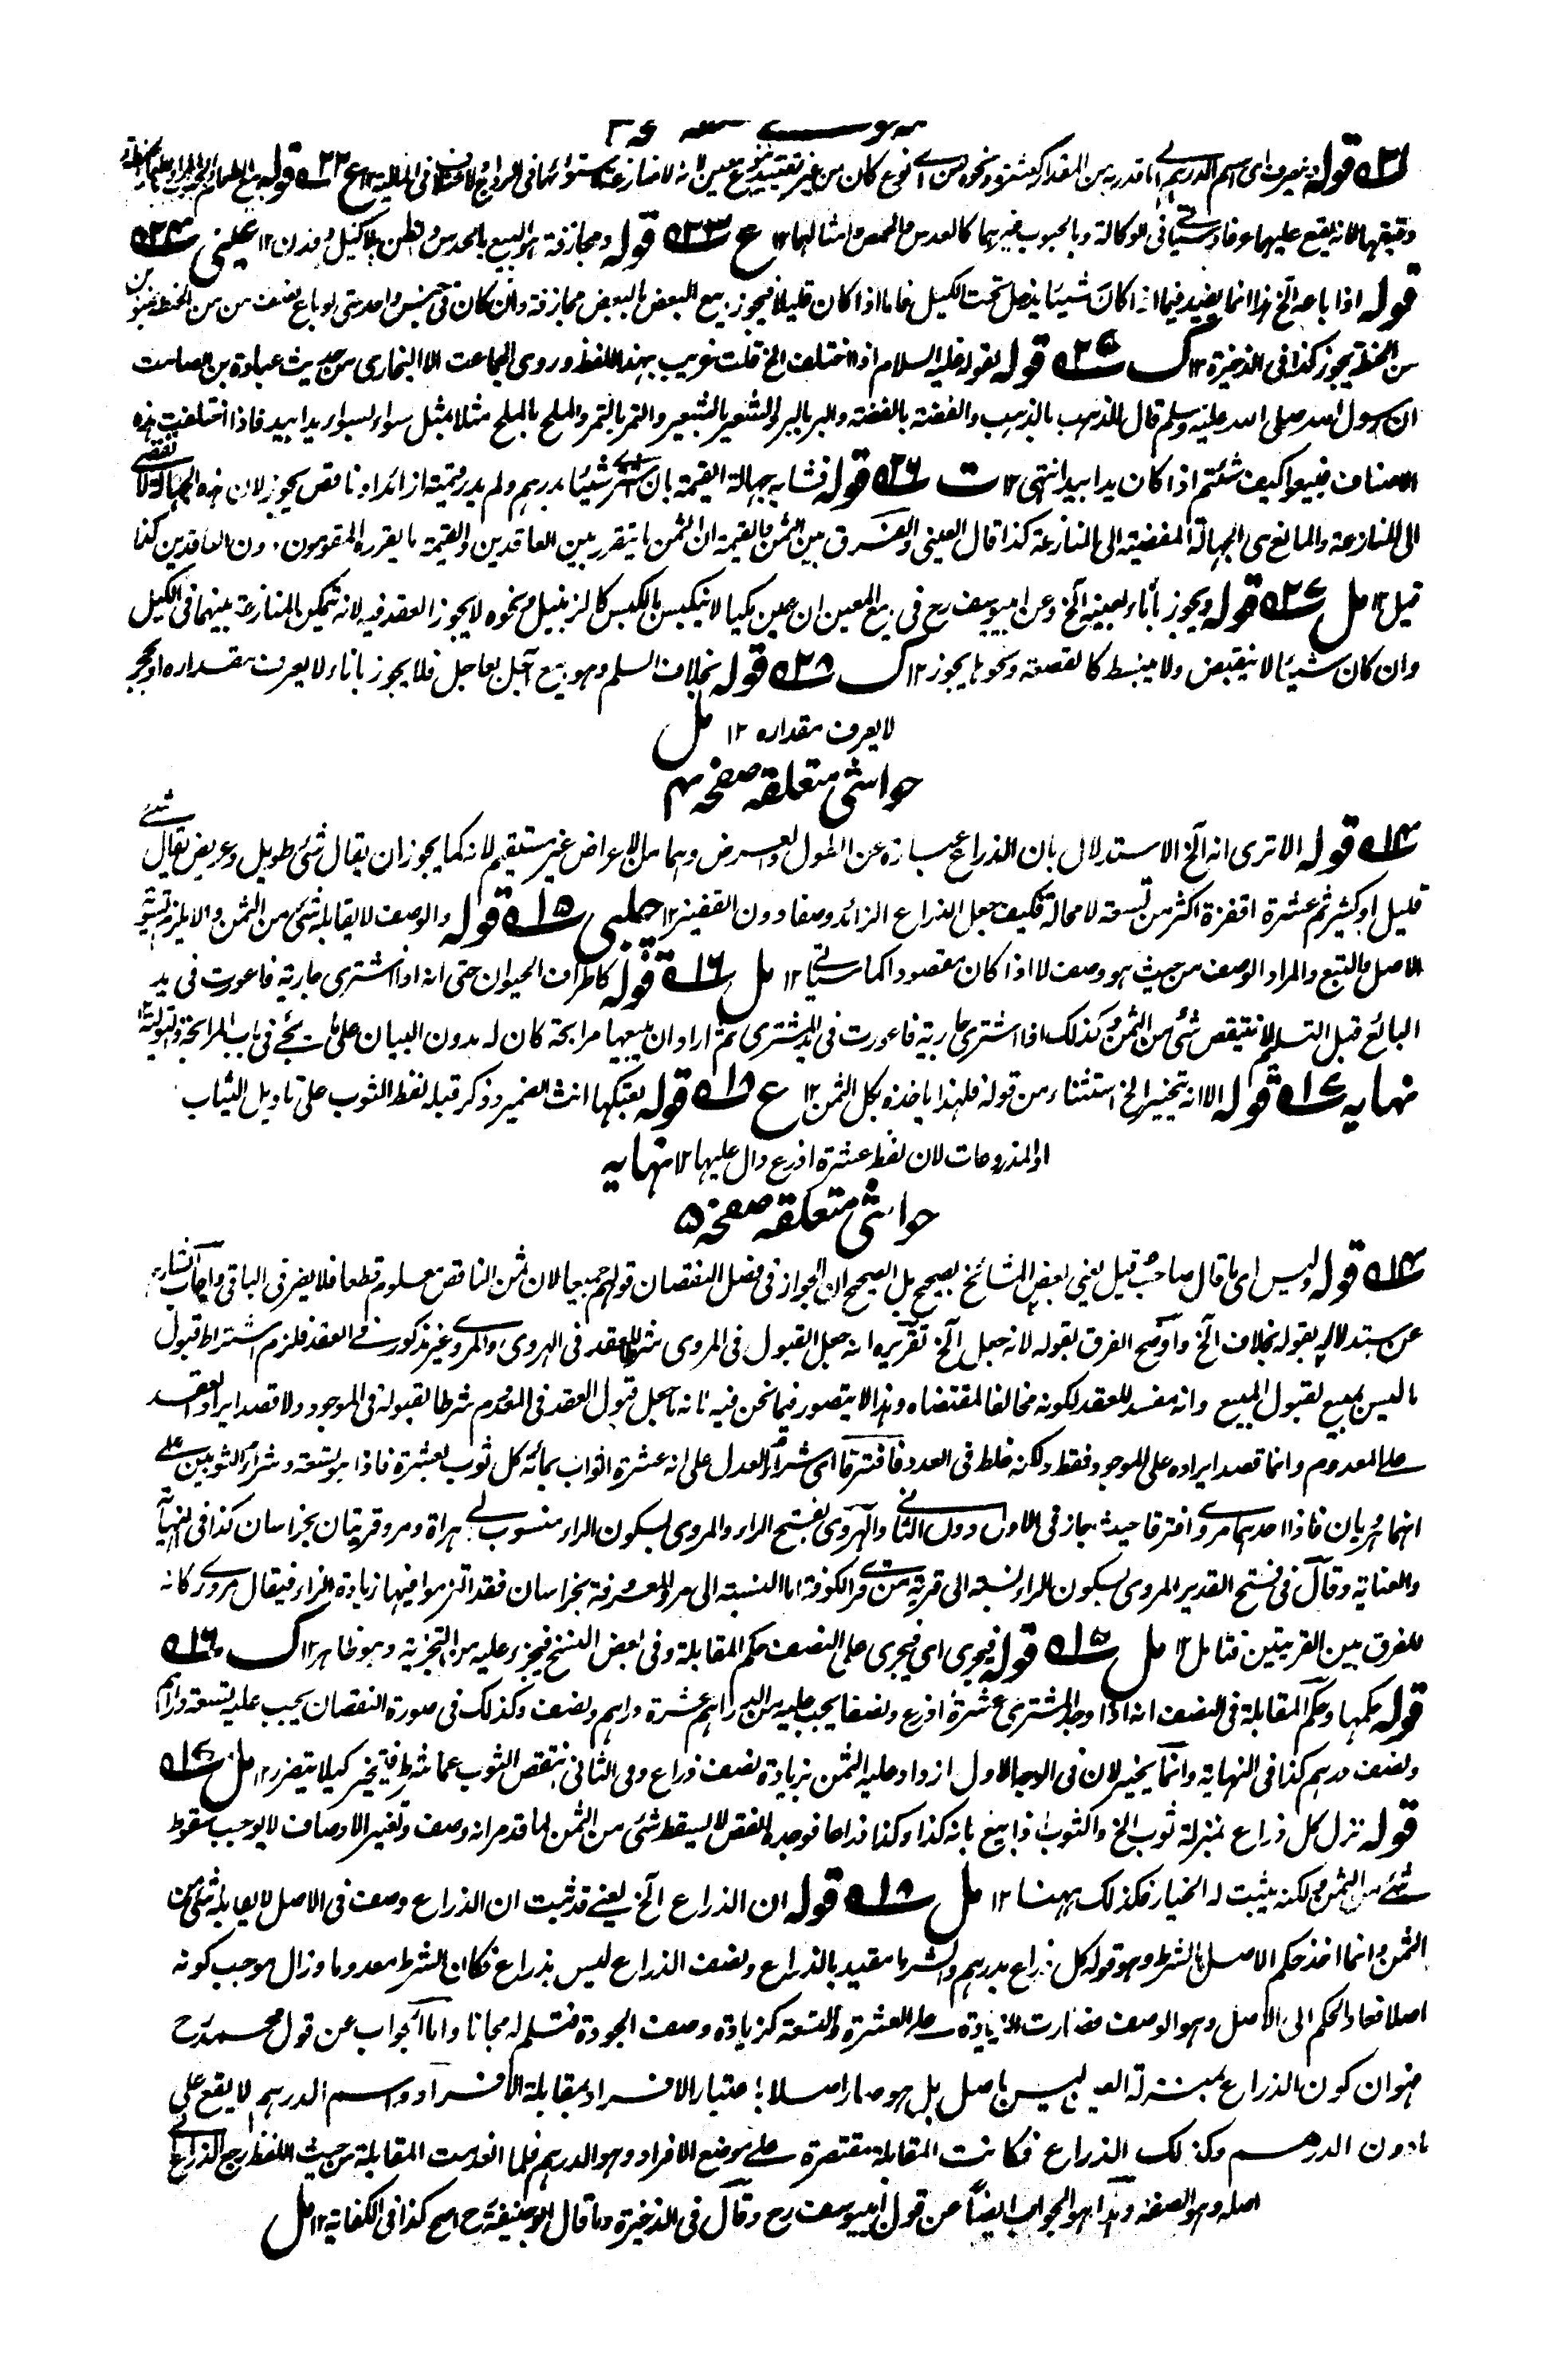 ٣١ قوله وينصرف اى اسم الدرهم الى ما قدر به من المقدار كعشرة ونحوه من اى نوع كان من غير تقييد بنوع معين لانه لا منازعة لاستوائها فى الرواج لاختلاف فى المالية ١٢ ع ٣٢ قوله بيع الطعام والحبوب المراد بالطعام الحنطة و
دقيقها لانه يقع عليهما عرفا وسيأتى فى الوكالة وبالحبوب غيرهما كالعدس والحمص وامثالهما ١٢ ع ٣٣ قوله ومجازفة هو البيع بالحدس والظن بلا كيل ووزن ١٢ عينى ٣٤
قوله اذا باعه الخ هذا انما يفيد فيما اذا كان شيئا يدخل تحت الكيل فاما اذا كان قليلا فيجوز بيع البعض بالبعض مجازفة وان كان فى جنس واحد حتى لو باع نصف من من الحنطة بمنوين
من الحنطة يجوز كذا فى الذخيرة ١٢ ك ٣٥ قوله لقوله عليه السلام اذا اختلف الخ قلت غريب بهذا اللفظ وروى الجماعت الا البخارى من حديث عبادة بن الصامت
ان رسول الله صلى الله عليه وسلم قال الذهب بالذهب والفضة بالفضة والبر بالبر والشعير بالشعير والتمر بالتمر والملح بالملح مثلا بمثل سواء بسواء يدا بيد فاذا اختلفت هذه
الاصناف فبيعوا كيف شئتم اذا كان يدا بيد انتهى ١٢ ت ٣٦ قوله فشابه جهالة القيمة بان اشترى شيئا بدرهم ولم يدر قيمته ازائد او ناقص يجوز لان هذه الجهالة لا تفضى
الى المنازعة والمانع هى الجهالة المفضية الى المنازعة كذا قال العينى والفرق بين الثمن والقيمة ان الثمن ما يتقرر بين العاقدين والقيمة ما يقرره المقومون دون العاقدين كذا
قيل ١٢ مل ٣٧ قوله ويجوز باناء بعينه الخ وعن ابى يوسف رح فى بيع المعين ان عين مكيالا ينكبس بالكبس كالزنبيل ونحوه لا يجوز العقد فيه لانه تتمكن المنازعة بينهما فى الكيل
وان كان شيئا لا ينقبض ولا ينبسط كالقصعة ونحوها يجوز ١٢ ك ٣٨ قوله بخلاف السلم وهو بيع آجل بعاجل فلا يجوز باناء لا يعرف مقداره او بحجر
لا يعرف مقداره ١٢ مل
حواشى متعلقه صفحه ٤
١٤ قوله الا ترى انه الخ الاستدلال بان الذراع عبارة عن الطول والعرض وهما من الاعراض غير مستقيم لانه كما يجوز ان يقال شئ طويل وعريض يقال شئ
قليل او كثير ثم عشرة اقفزة اكثر من تسعة لا محالة فكيف جعل الذراع الزائد وصفا دون القفيز ١٢ چلپى ١٥ قوله والوصف لا يقابله شئ من الثمن والا يلزم تسوية
الاصل والتبع والمراد الوصف من حيث هو وصف لا اذا كان مقصودا كما سيأتى ١٢ مل ١٦ قوله كاطراف الحيوان حتى انه اذا اشترى جارية فاعورت فى يد
البائع قبل التسليم لا ينتقص شئ من الثمن وكذلك اذا اشترى جارية فاعورت فى يد المشترى ثم اراد ان يبيعها مرابحة كان له بدون البيان على ما يجئ فى باب المرابحة والتولية ١٢
نهايه ١٧ قوله الا انه يتخير الخ استثناء من قوله فلهذا ياخذه بكل الثمن ١٢ ع ١٨ قوله بعتكها انث الضمير وذكر قبله لفظ الثوب على تاويل الثياب
او المذروعات لان لفظ عشرة اذرع دال عليها ١٢ نهايه
حواشى متعلقه صفحه ٥
١٤ قوله وليس اى ما قال صاحب قيل يعنى بعض المشائخ بصحيح بل الصحيح ان الجواز فى فصل النقصان قولهم جميعا لان ثمن الناقص معلوم قطعا فلا يضر فى الباقى واجاب الشارح
عن استدلاله بقوله بخلاف الخ واوضح الفرق بقوله لانه جعل الخ تقريره انه جعل القبول فى المروى شرطا للعقد فى الهروى والمروى غير مذكور فى العقد فلزم اشتراط قبول
ما ليس بمبيع لقبول المبيع وانه مفسد للعقد لكونه مخالفا لمقتضاه وهذا لا يتصور فيما نحن فيه فانه ما جعل قبول العقد فى المعدوم شرطا لقبوله فى الموجود ولا قصد ايراد العقد
على المعدوم وانما قصد ايراده على الموجود فقط ولكنه غلط فى العدد فافترقا اى شراء العدل على انه عشرة اثواب بمائة كل ثوب بعشرة فاذا هو تسعة وشراء الثوبين على
انهما هرويان فاذا احدهما مروى افترقا حيث جاز فى الاول دون الثانى والهروى بفتح الراء والمروى بسكون الراء منسوب الى هراة ومرو قريتان بخراسان كذا فى النهاية
والعناية وقال فى فتح القدير المروى بسكون الراء نسبة الى قرية من قرى الكوفة اما النسبة الى مرو المعروفة بخراسان فقد التزموا فيها زيادة الزاء فيقال مروزى كانه
للفرق بين القريتين فتامل ١٢ مل ١٥ قوله فيجرى اى فيجرى على النصف حكم المقابلة وفى بعض النسخ فيجزء عليه من التجزية وهو ظاهر ١٢ ك ١٦
قوله حكمها وحكم المقابلة فى النصف انه اذا وجد المشترى عشرة اذرع ونصفا يجب عليه من الدراهم عشرة دراهم ونصف وكذلك فى صورة النقصان يجب عليه تسعة دراهم
ونصف درهم كذا فى النهاية وانما يخير لان فى الوجه الاول ازداد عليه الثمن بزيادة نصف ذراع وفى الثانى ينتقص الثوب عما شرط فيتخير كيلا يتضرر ١٢ مل ١٧
قوله نزل كل ذراع بمنزلة ثوب الخ والثوب اذا بيع بانه كذا وكذا ذراعا فوجده انقص لا يسقط شئ من الثمن لما قد مر انه وصف وتغير الاوصاف لا يوجب سقوط
شئ من الثمن لكنه يثبت له الخيار فكذلك ههنا ١٢ مل ١٨ قوله ان الذراع الخ يعنى قد ثبت ان الذراع وصف فى الاصل لا يقابله شئ من
الثمن وانما اخذ حكم الاصل بالشرط وهو قوله كل ذراع بدرهم والشرط مقيد بالذراع ونصف الذراع ليس بذراع فكان الشرط معدوما وزال موجب كونه
اصلا فعاد الحكم الى الاصل وهو الوصف فصارت الزيادة على العشرة والتسعة كزيادة وصف الجودة فتسلم له مجانا واما الجواب عن قول محمد رح
فهو ان كون الذراع بمنزلة ليس باصل بل هو صار اصلا باعتبار الافراد بمقابلة الافراد واسم الدرهم لا يقع على
ما دون الدرهم وكذلك الذراع فكانت المقابلة مقتصرة على موضع الافراد وهو الدرهم فلما انعدمت المقابلة من حيث اللفظ رجع الذراع الى
اصله وهو الصفة وهذا هو الجواب ايضا عن قول ابى يوسف رح وقال فى الذخيرة وما قال ابو حنيفة رح اصح كذا فى الكفاية ١٢ مل